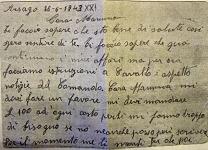 Arsago 28-6-1943 XXI
Cara Mamma
Ti faccio sapere che sto bene di salute così
spero sentire di te. Ti faccio sapere che qua
continuano i miei affari ma per ora
facciamo istruzioni a Cavallo e aspetto
notizie dal Comando. Cara Mamma mi
devi fare un favore mi devi mandare
£ 100 ad ogni costo perchè mi fanno troppo
di bisogno se no neanche posso per scrivere
Per il momento